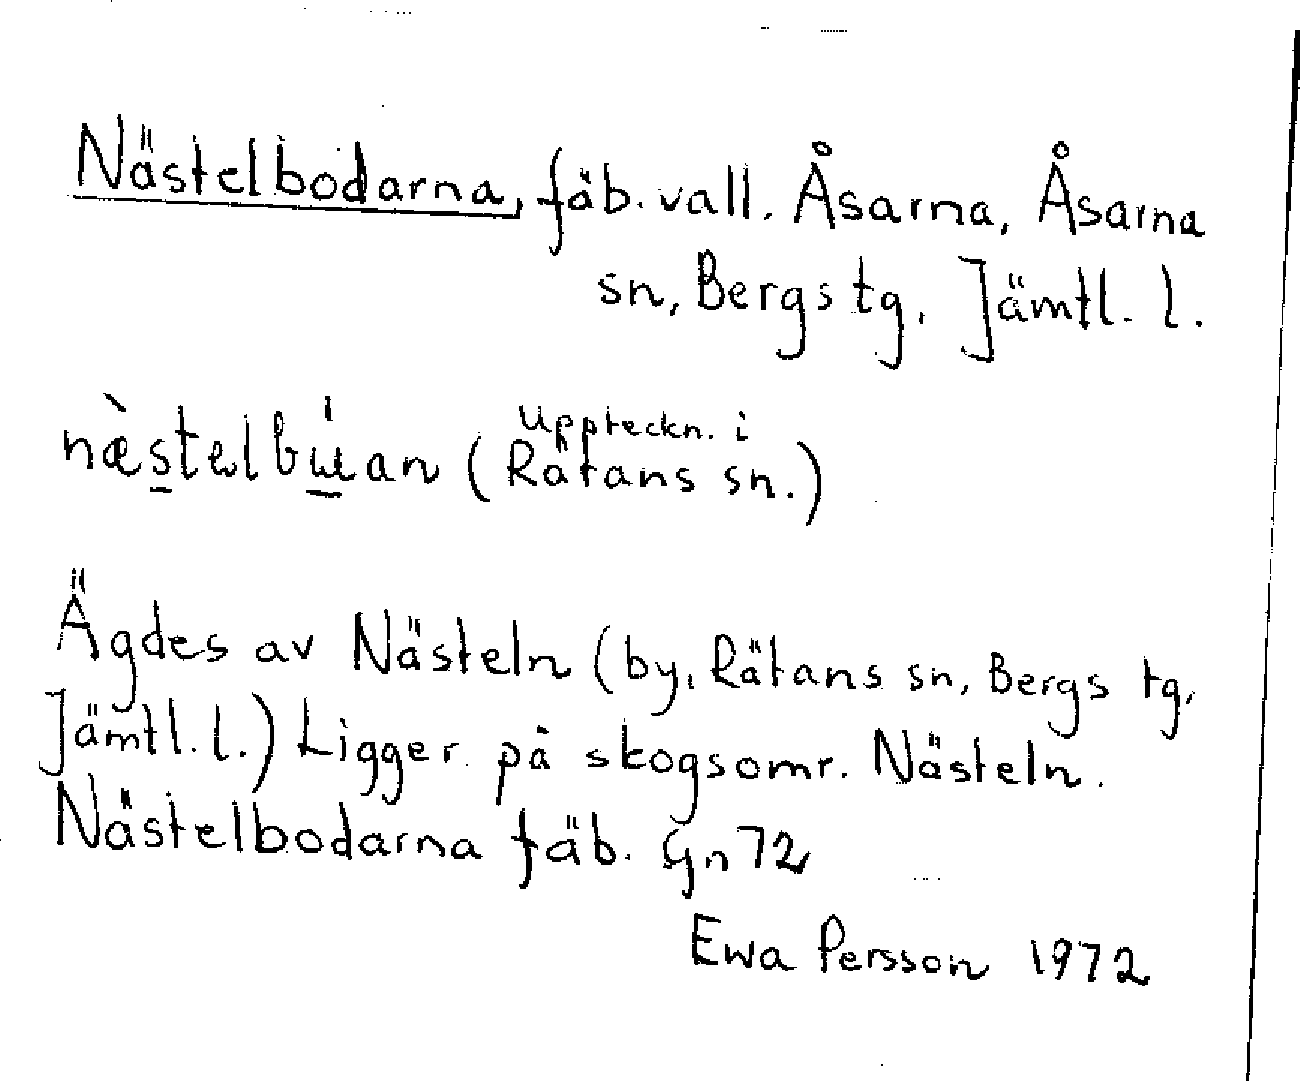 Nästelbodarna, fäb. vall. Åsarna, Åsarna
sn, Bergs tg. Jämtl. l.
næ̀stelbu̍an (Uppteckn. i
Rätans sn.)
Ägdes av Nästeln (by, Rätans sn, Bergs tg,
Jämtl. l.) Ligger på skogsomr. Nästeln.
Nästelbodarna fäb. Gn 72
Ewa Persson 1972